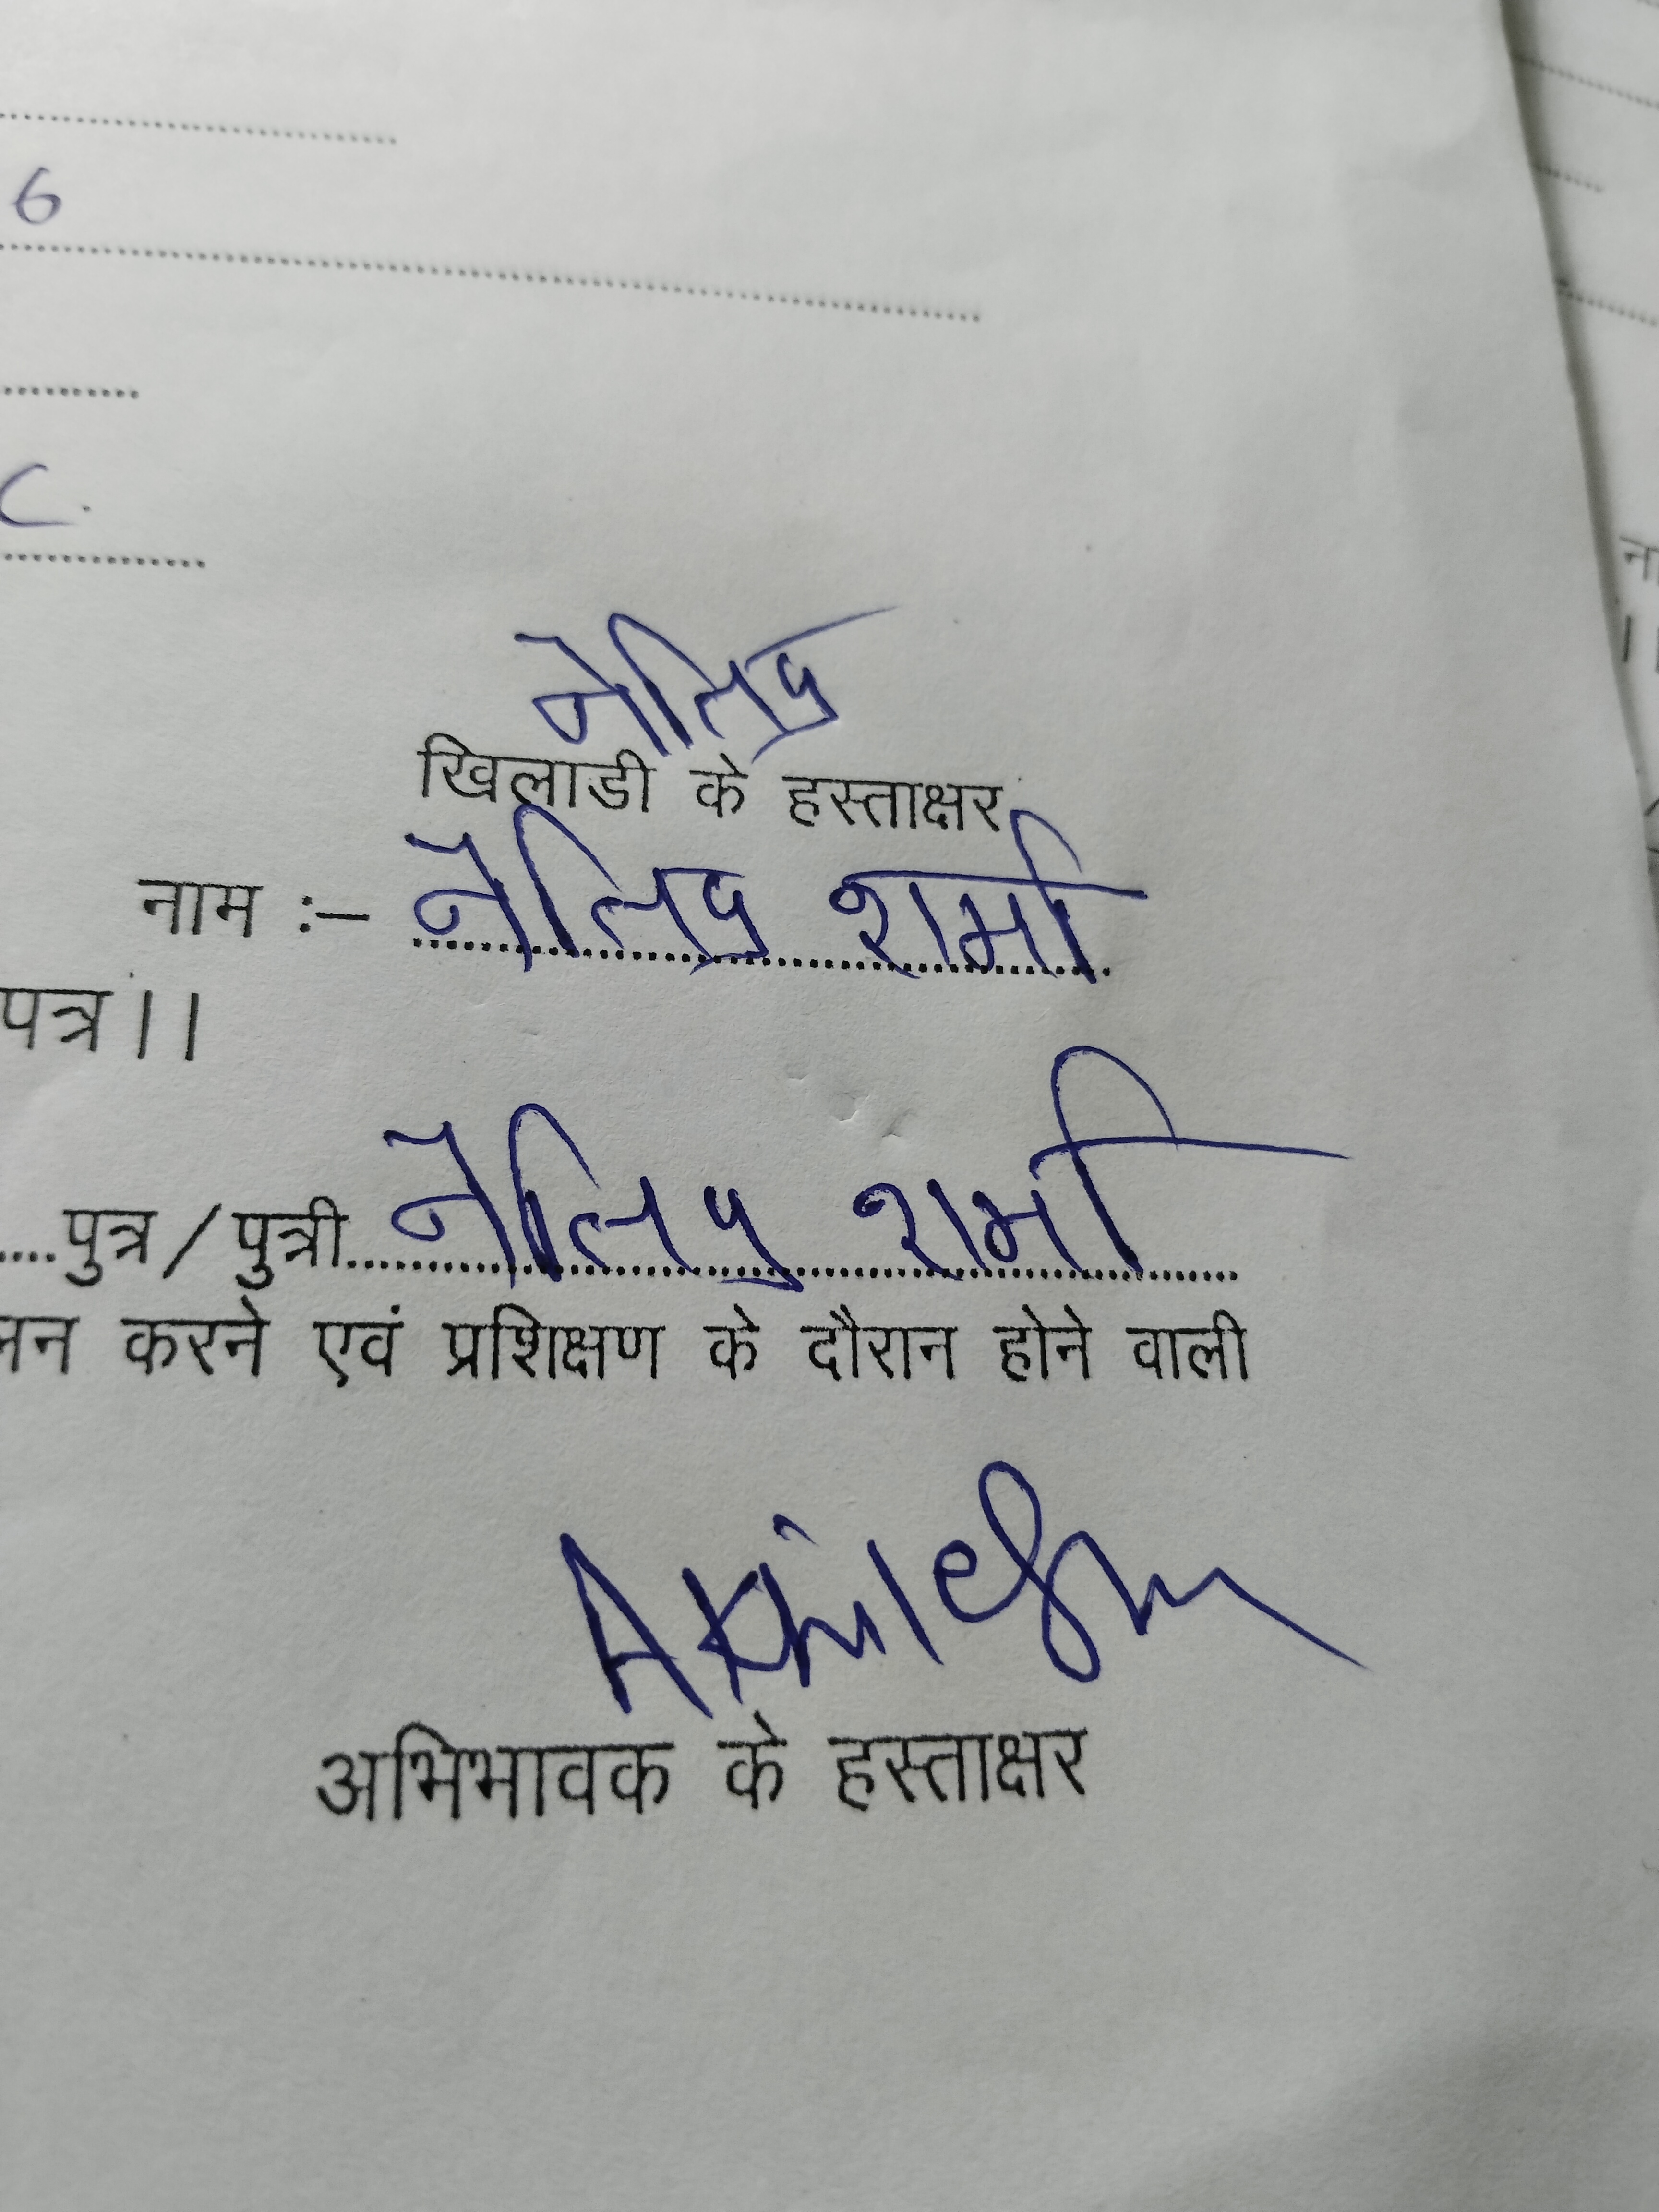 6
C.
खिलाडी के हस्ताक्षर
नाम :– शर्मा
पत्र।।
पुत्र/पुत्री शर्मा
करने एवं प्रशिक्षण के दौरान होने वाली
Akhilesh
अभिभावक के हस्ताक्षर